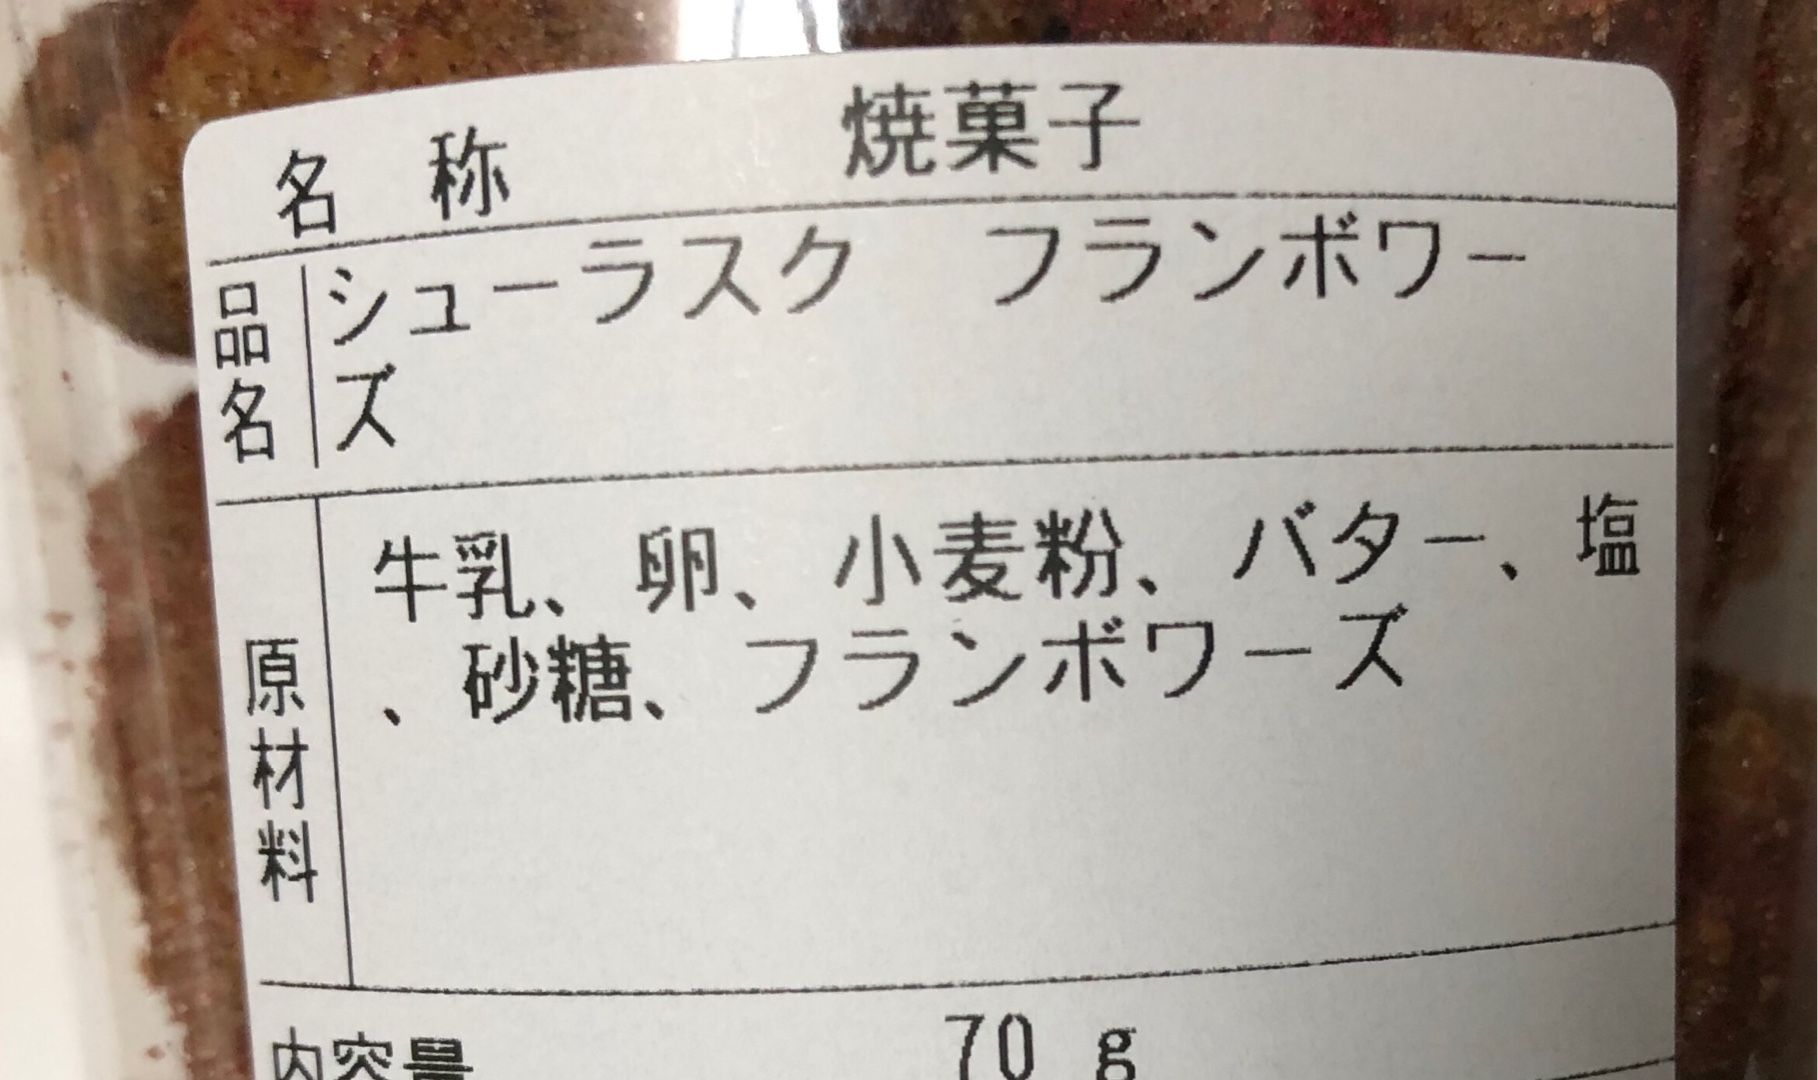 名 称 焼菓子
品名 シューラスク フランボワー
ズ
原材料 牛乳、卵、小麦粉、バター、塩
、砂糖、フランボワーズ
内容量 70 g